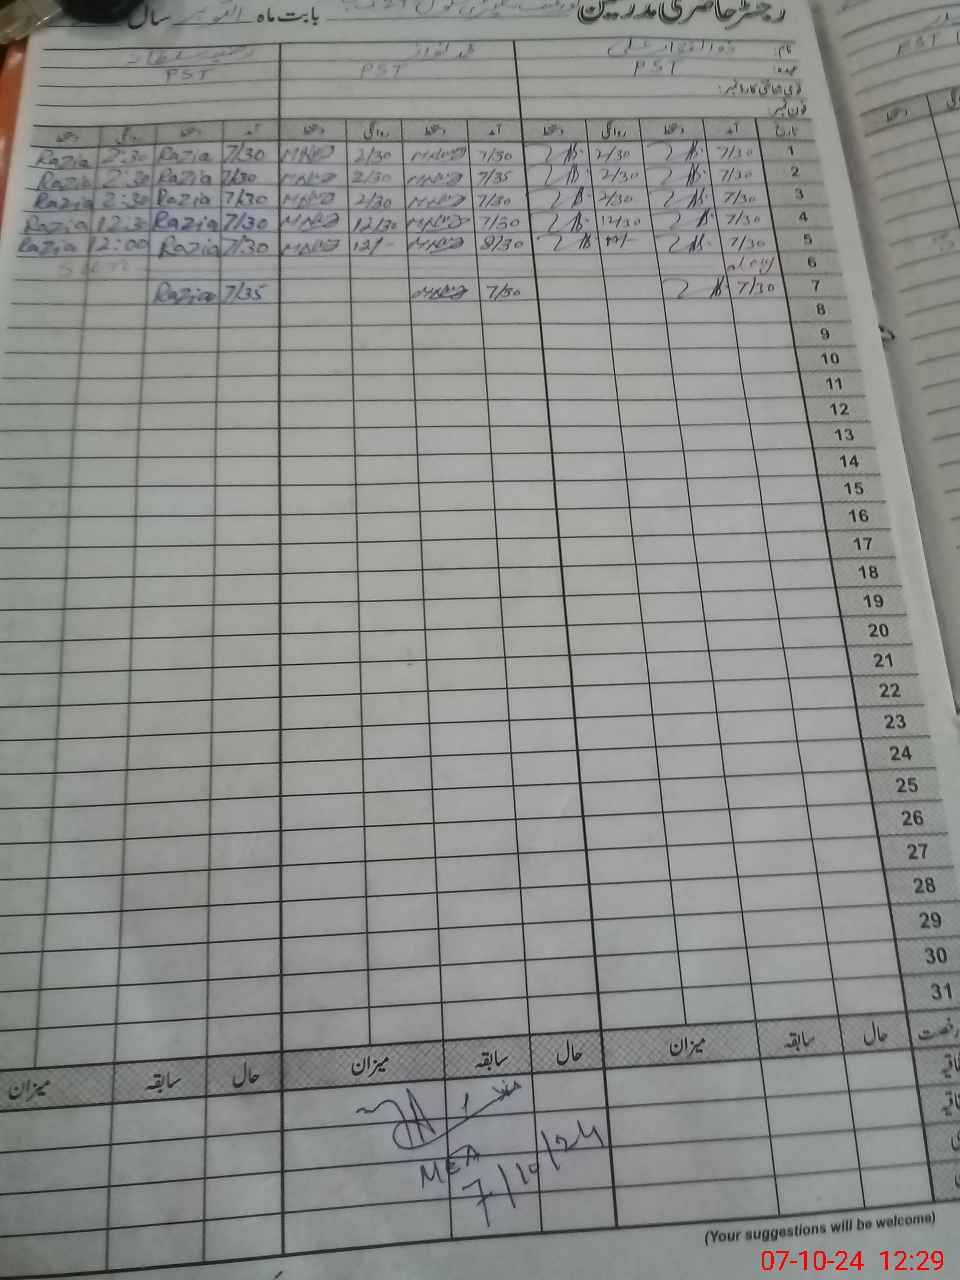 رجسٹر حاضری مدرسین بابت ماہ اکتوبر سال
نام: ذوالفقار علی محمد نواز رضیہ سلطانہ
عہدہ: PST PST PST
قومی شناختی کارڈ نمبر:
فون نمبر:
تاریخ آمد دستخط روانگی دستخط آمد دستخط روانگی دستخط آمد دستخط روانگی دستخط
1 7/30 2/30 7/30 2/30 7/30 Razia 2:30 Razia
2 7/30 2/30 7/35 2/30 7/30 Razia 2:30 Razia
3 7/30 2/30 7/30 2/30 7/30 Razia 2:30 Razia
4 7/30 12/30 7/30 12/30 7/30 Razia 12:30 Razia
5 7/30 12/- 8/30 12/- 7/30 Razia 12:00 Razia
6 اتوار Sun
7 7/30 7/30 7/35 Razia
8
9
10
11
12
13
14
15
16
17
18
19
20
21
22
23
24
25
26
27
28
29
30
31
رخصت حال سابقہ میزان حال سابقہ میزان حال سابقہ میزان
MEA
7/10/24
(Your suggestions will be welcome)
07-10-24 12:29